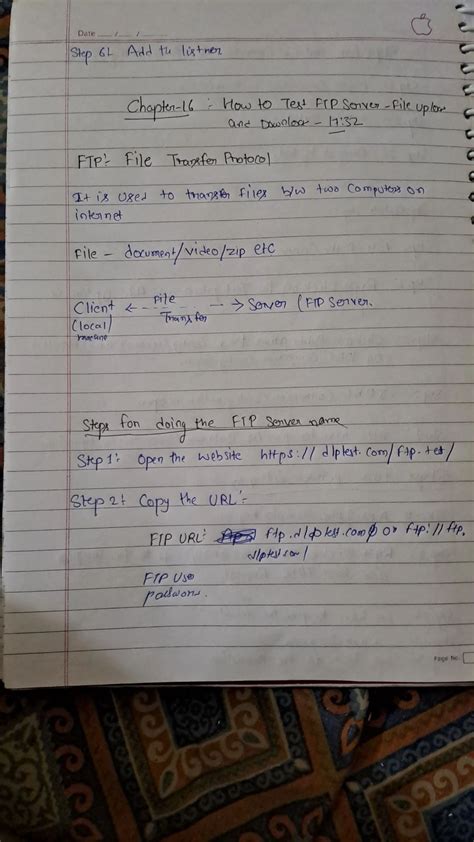 Date ___/___/___
Step 6: Add the listner
Chapter-16 : How to Test FTP Server - File Upload
and Download - 17:32
FTP: File Transfer Protocol
It is used to transfer files b/w two computers on
internet
File - document/video/zip etc
Client <--- File Transfer ---> Server (FTP Server
(local)
machine
Steps for doing the FTP Server name
Step 1: Open the website https://dlptest.com/ftp-test/
Step 2: Copy the URL:-
FTP URL: ftp.dlptest.com or ftp://ftp.
dlptest.com/
FTP Use
password.
Page No.